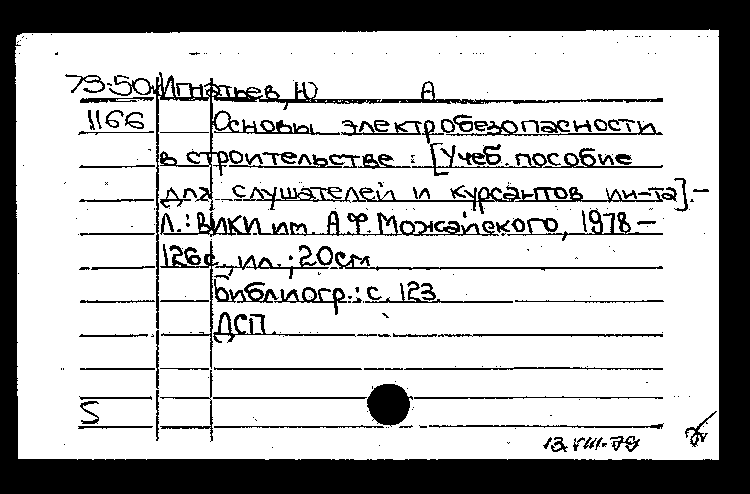 79-50 Игнатьев, Ю А
1166 Основы электробезопасности
в строительстве : [Учеб. пособие
для слушателей и курсантов ин-та]. -
Л.: ВИКИ им. А.Ф. Можайского, 1978 -
126с., ил.; 20см.
Библиогр.: с. 123.
ДСП.
S
13.VIII-79